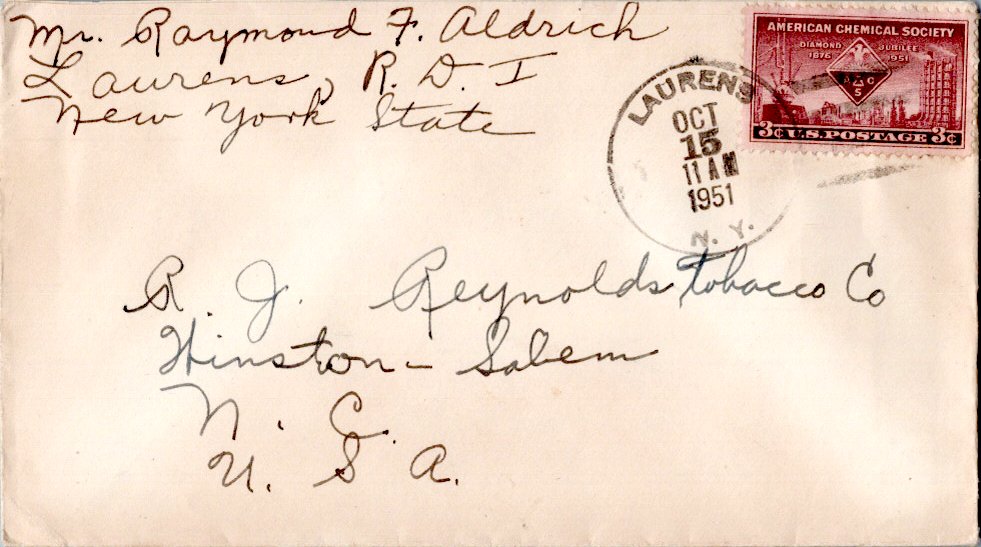 Mr. Raymond F. Aldrich
Laurens, R. D. I
New York State
AMERICAN CHEMICAL SOCIETY
DIAMOND JUBILEE
1876 1951
A C S
3¢ U.S. POSTAGE 3¢
LAURENS
OCT
15
11 AM
1951
N. Y.
R. J. Reynolds tobacco Co
Winston - Salem
N. C.
U. S. A.